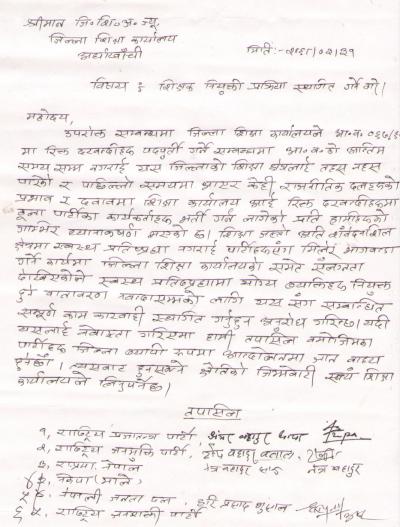 श्रीमान् जि॰शि॰अ॰ज्यू,
जिल्ला शिक्षा कार्यालय
अर्घाखाँची
मिति:-
विषय : शिक्षक नियुक्ती प्रक्रिया स्थगित गर्ने बारे।
महोदय,
उपरोक्त सम्बन्धमा जिल्ला शिक्षा कार्यालयले आ॰व॰
मा रिक्त दरवन्दीहरु पदपुर्ती गर्ने सम्बन्धमा आ॰व॰को अन्तिम
समय सम्म नगराई यस जिल्लाको शिक्षा क्षेत्रलाई तहस नहस
पारेको र पछिल्लो समयमा आएर केही राजनीतिक दलहरुको
प्रभाव र दवावमा शिक्षा कार्यालय आई रिक्त दरवन्दीहरुमा
पार्टीका कार्यकर्ताहरु भर्ती गर्न लागेको प्रति हामीहरुको
गम्भिर ध्यानाकर्षण भएको छ। शिक्षा जस्तो अति संवेदनशिल
क्षेत्रमा स्वस्थ्य प्रतिष्पर्धा नगराई पार्टीहरुसंग मिलेर भागवण्डा
गर्ने कार्यमा जिल्ला शिक्षा कार्यालयको समेत संलग्नता
देखिएकोले स्वस्थ्य प्रतिष्पर्धामा योग्य व्यक्तिहरु नियुक्त
हुने वातावरण नवनेसम्मको लागि यस संग सम्बन्धित
सम्पूर्ण काम कारवाही स्थगित गर्नुहुन अनुरोध गरिन्छ। यदी
यसलाई नेवास्ता गरिएमा हामी तपसिल बमोजिमका
पार्टीहरु जिल्ला व्यापी रूपमा आन्दोलनमा जान वाध्य
हुनेछौं। त्यसवाट हुनसक्ने क्षेतिको जिम्मेवारी स्वयं शिक्षा
कार्यालयले लिनुपर्नेछ।
तपसिल
१, राष्ट्रिय प्रजातन्त्र पार्टी, बहादुर थापा
२, राष्ट्रिय जनमुक्ति पार्टी,
३, राप्रपा नेपाल
४, नेकपा माले
५, नेपाली जनता दल
६, राष्ट्रिय जनशक्ती पार्टी